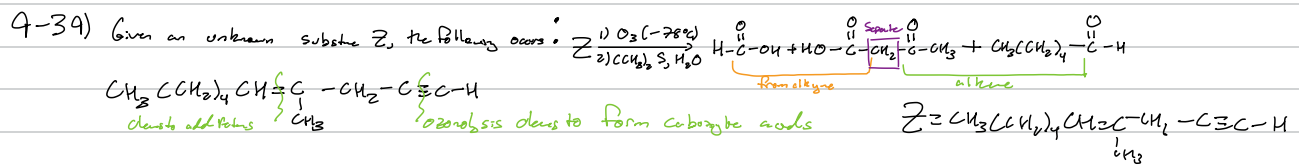 9-39) Given an unknown substance Z, the following occurs: Z 1) O3 (-78°C) 2) (CH3)2 S, H2O H-C(=O)-OH + HO-C(=O)-CH2-C(=O)-CH3 + CH3(CH2)4-C(=O)-H
Separate
from alkyne alkene
CH3 (CH2)4 CH=C-CH2-C≡C-H
CH3
cleaves to add ozonolysis cleaves to form carboxylic acids
Z = CH3(CH2)4CH=C-CH2-C≡C-H
CH3